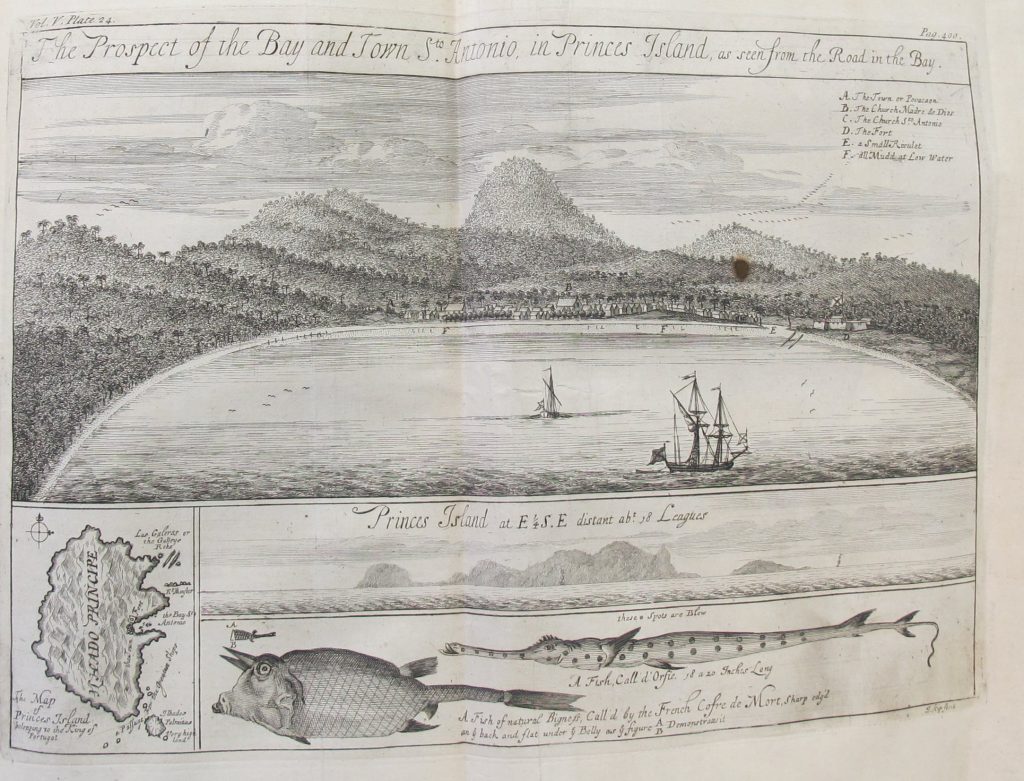 Vol. V. Plate 24.
Pag. 400.
The Prospect of the Bay and Town Sto. Antonio, in Princes Island, as seen from the Road in the Bay.
A. The Town or Povacaen
B. The Church Madre de Dios
C. The Church Sto Antonio
D. The Fort
E. a Small Revulet
F. All Mudd at Low Water
B
F
F
E
D
Princes Island at E ¼ S. E distant abt. 18 Leagues
Las Galeras or
the Galleys
Rks
the Bay St.
Antonio
I. HA DO PRINCIPE
The Map
of
Princes Island
belonging to the King of
Portugal
Very high
land
these Spots are Blew
A Fish, Call'd Orfie, 18 a 20 Inches Long
A
B
A Fish of natural Bigness, Call'd by the French Cofre de Mort, Sharp edg'd
on ye back and flat under ye Belly as ye figure A B Demonstrasit